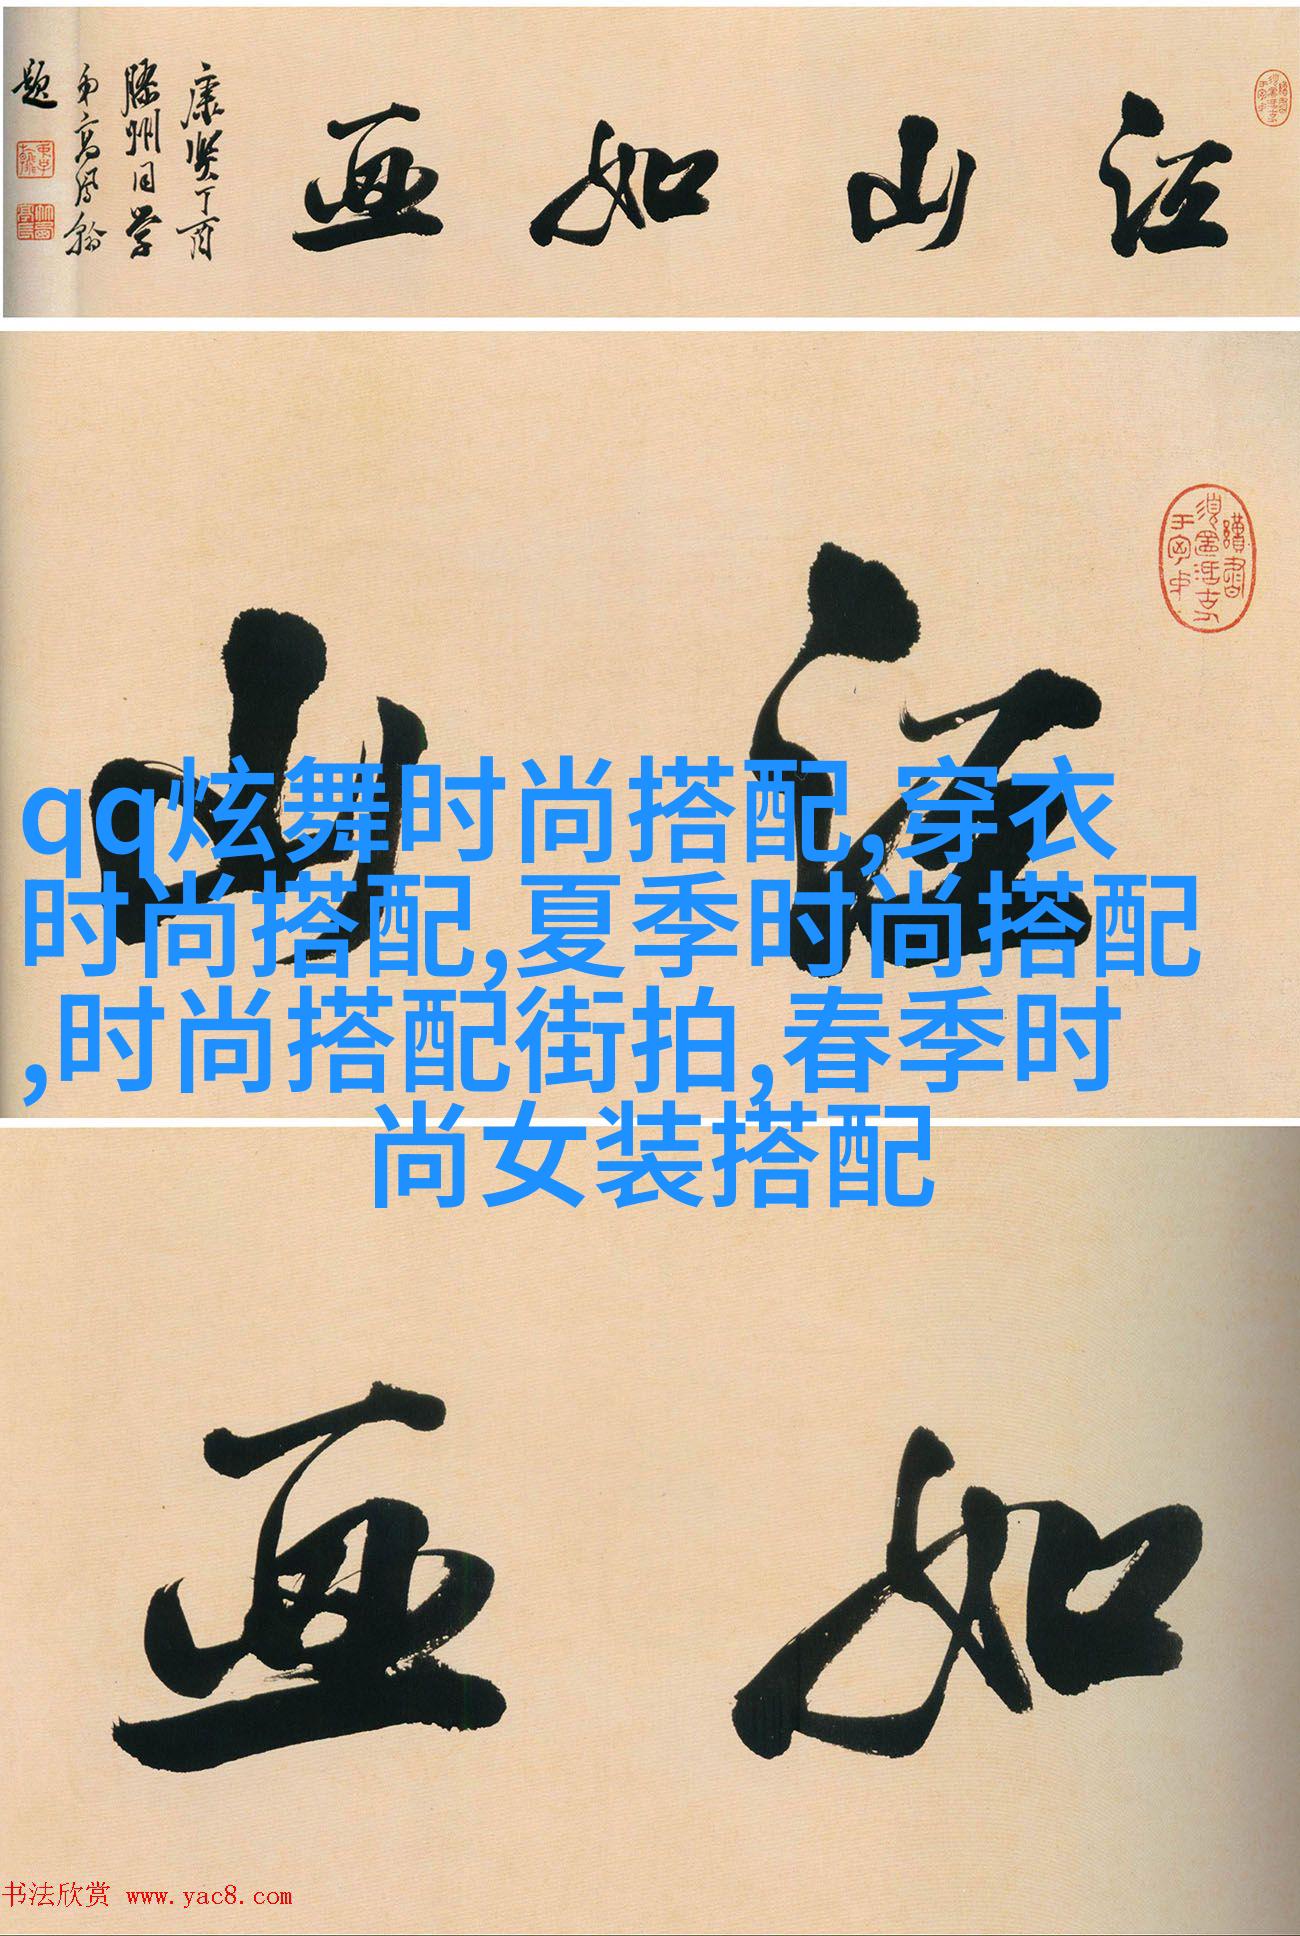 江山如画
康熙丁酉
滕州同学
弟高凤翰
题
山江
qq炫舞时尚搭配,穿衣
时尚搭配,夏季时尚搭配
,时尚搭配街拍,春季时
尚女装搭配
画如
书法欣赏 www.yac8.com